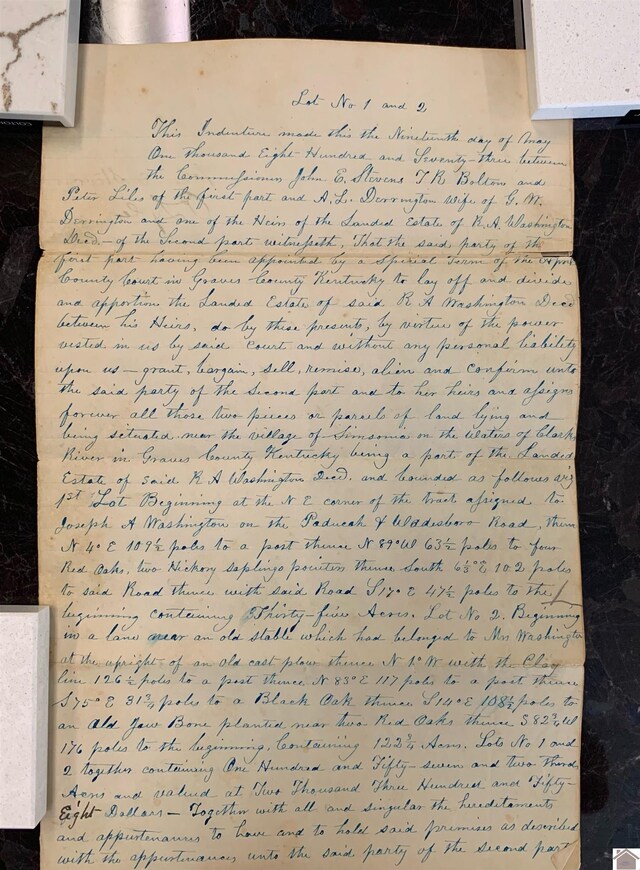 Lot No 1 and 2
This Indenture made this the Nineteenth day of May
One thousand Eight Hundred and Seventy-three between
the Commissioners John E. Stevens T R Bolton and
Peter Liles of the first part and A. L. Derrington wife of G. W.
Derrington and one of the Heirs of the Landed Estate of R. A. Washington
Decd. – of the Second part witnesseth, That the said party of the
first part having been appointed by a Special Term of the
County Court in Graves County Kentucky to lay off and divide
and apportion the Landed Estate of said R A Washington Decd
between his Heirs, do by these presents, by virtue of the power
vested in us by said Court and without any personal liability
upon us – grant, bargain, sell, remise, alien and confirm unto
the said party of the Second part and to her heirs and assigns
forever all those two pieces or parcels of land lying and
being situated near the village of Simsonia on the Waters of Clark
River in Graves County Kentucky being a part of the Landed
Estate of said R A Washington Decd. and bounded as follows viz
1st Lot Beginning at the N E corner of the tract assigned to
Joseph A Washington on the Paducah & Wadesboro Road, thence
N 4° E 109½ poles to a post thence N 89° W 63½ poles to four
Red Oaks, two Hickory saplings pointers thence South 6½° E 102 poles
to said Road thence with said Road S 17° E 47½ poles to the
beginning containing Thirty-five Acres. Lot No 2. Beginning
in a lane near an old stable which had belonged to Mrs Washington
at the upright of an old cast plow thence N 1° W with the Clay
line 126½ poles to a post thence N 83° E 117 poles to a post thence
S 75° E 31¾ poles to a Black Oak thence S 14° E 108½ poles to
an Old Jaw Bone planted near two Red Oaks thence S 82¾ W
176 poles to the beginning, Containing 122¾ Acres. Lots No 1 and
2 together containing One Hundred and Fifty-seven and two thirds
Acres and valued at Two Thousand Three Hundred and Fifty-
Eight Dollars – Together with all and singular the hereditaments
and appurtenances to have and to hold said premises as described
with the appurtenances unto the said party of the second part